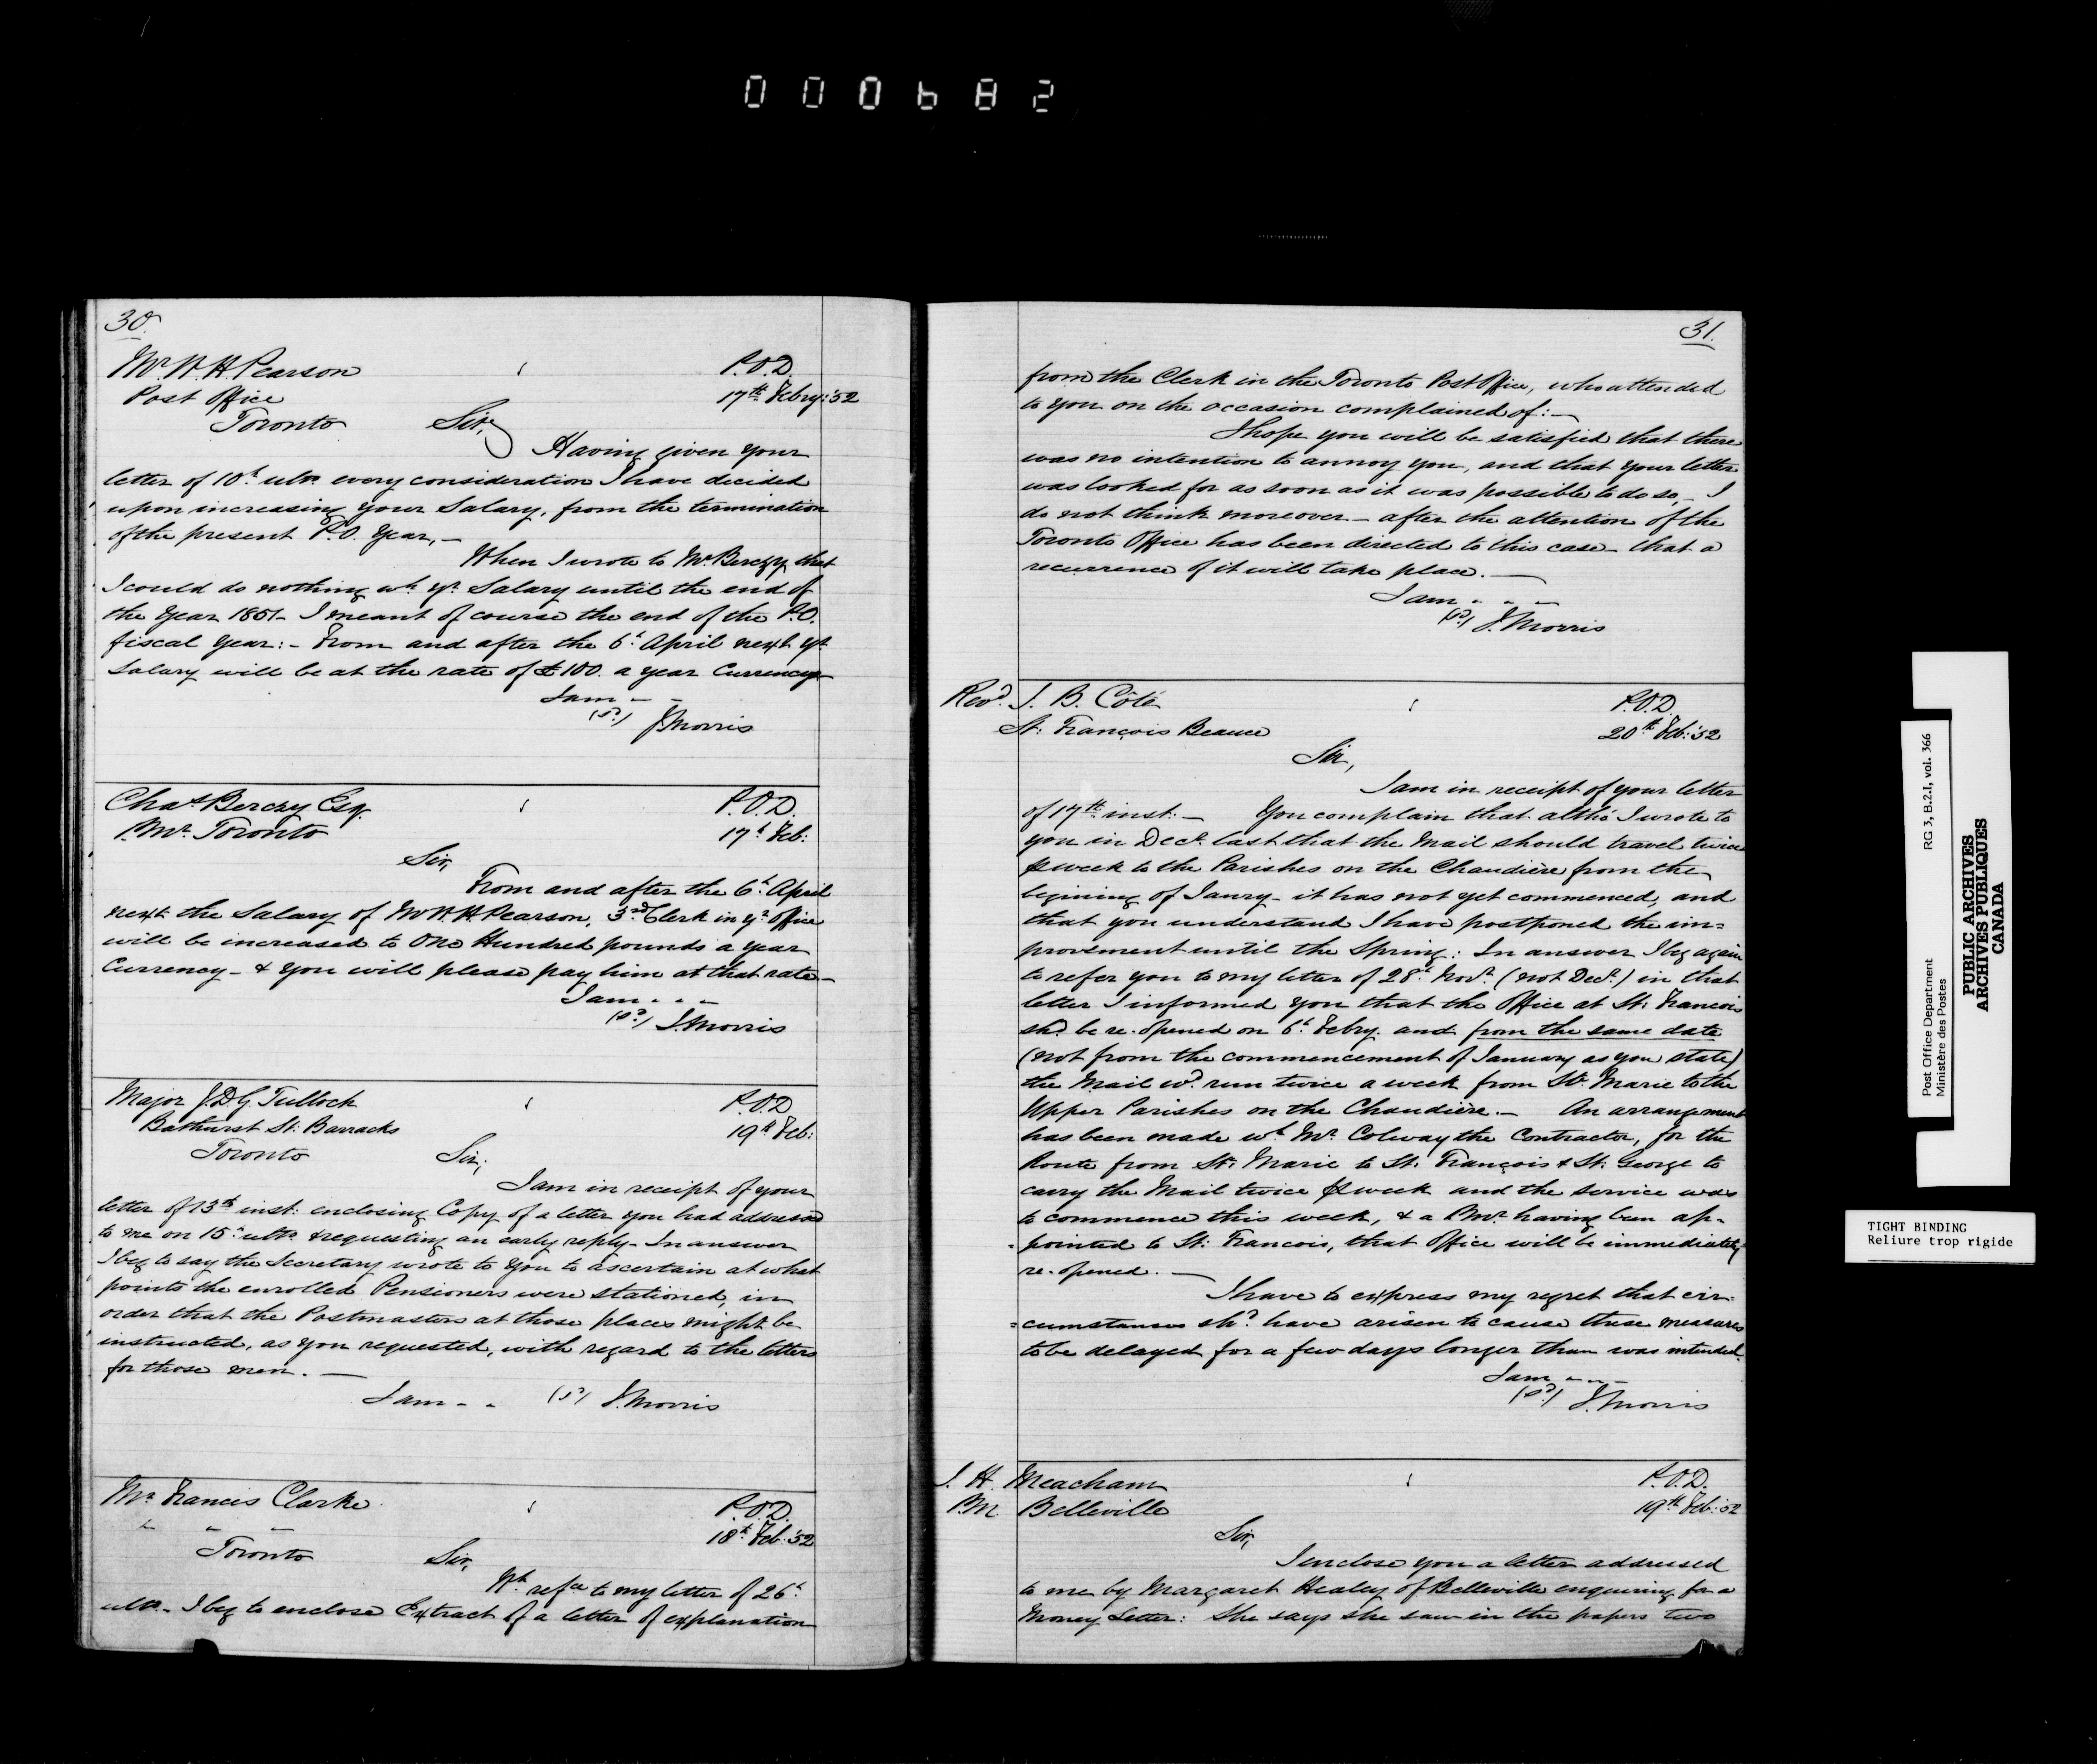 000682
30.
Mr. W. H. Pearson
P.O.D.
Post Office
17th Febry: '52
Toronto
Sir,
Having given your
letter of 10th ulto. every consideration I have decided
upon increasing your Salary, from the termination
of the present P.O. Year,—
When I wrote to Mr. Berczy that
I could do nothing wh. yr. Salary until the end of
the Year 1851— I meant of course the end of the P.O.
fiscal Year:— From and after the 6th April next yr.
Salary will be at the rate of £100. a year Currency—
I am — —
(sd) J. Morris
Chas. Berczy Esq.
P.O.D.
P.Mr. Toronto
17th Feb:
Sir,
From and after the 6th April
next the Salary of Mr W. H. Pearson, 3rd Clerk in yr. Office
will be increased to One Hundred pounds a year
Currency— & you will please pay him at that rate—
I am . . —
(sd) J. Morris
Major J. D. G. Tulloch
P.O.D.
Bathurst St: Barracks
19th Feb:
Toronto
Sir,
I am in receipt of your
letter of 13th inst: enclosing Copy of a letter you had addressed
to me on 15th ulto. & requesting an early reply— In answer
I beg to say the Secretary wrote to you to ascertain at what
points the enrolled Pensioners were stationed, in
order that the Postmasters at those places might be
instructed, as you requested, with regard to the letters
for those men. —
I am - - (sd) J. Morris
Mr. Francis Clarke
P.O.D.
" " "
18th Feb: '52
Toronto
Sir,
Wh. refce to my letter of 26th
ulto.— I beg to enclose Extract of a letter of explanation
31.
from the Clerk in the Toronto Post Office, who attended
to you on the occasion complained of:—
I hope you will be satisfied that there
was no intention to annoy you, and that your letter
was looked for as soon as it was possible to do so,— I
do not think moreover— after the attention of the
Toronto Office has been directed to this case— that a
recurrence of it will take place. —
I am - - —
(sd) J. Morris
Revd. J. B. Côté
P.O.D.
St: François Beauce
20th Feb: '52
Sir,
I am in receipt of your letter
of 17th inst:— You complain that altho' I wrote to
you in Decr. last that the Mail should travel twice
⅌ week to the Parishes on the Chaudière from the
begining of Janry— it has not yet commenced, and
that you understand I have postponed the im=
provement until the Spring: In answer I beg again
to refer you to my letter of 28th Novr. (not Decr.) in that
letter I informed you that the Office at St: Francois
shd. be re-opened on 6th Febry. and from the same date
(not from the commencement of January as you state)
the Mail wd. run twice a week from St. Marie to the
Upper Parishes on the Chaudière.— An arrangement
has been made wh. Mr. Colway the Contractor, for the
Route from St: Marie to St: François & St: George to
carry the Mail twice ⅌ week and the service was
to commence this week, & a P.Mr. having been ap-
-pointed to St: Francois, that Office will be immediately
re-opened. —
I have to express my regret that cir=
=cumstances shd. have arisen to cause these measures
to be delayed for a few days longer than was intended.
I am - - —
(sd) J. Morris
J. H. Meacham
P.O.D.
P.M. Belleville
19th Feb: '52
Sir,
I enclose you a letter addressed
to me by Margaret Healey of Belleville enquiring for a
Money Letter: She says she saw in the papers two
Post Office Department RG 3, B.2.I, vol. 366
Ministère des Postes
PUBLIC ARCHIVES
ARCHIVES PUBLIQUES
CANADA
TIGHT BINDING
Reliure trop rigide